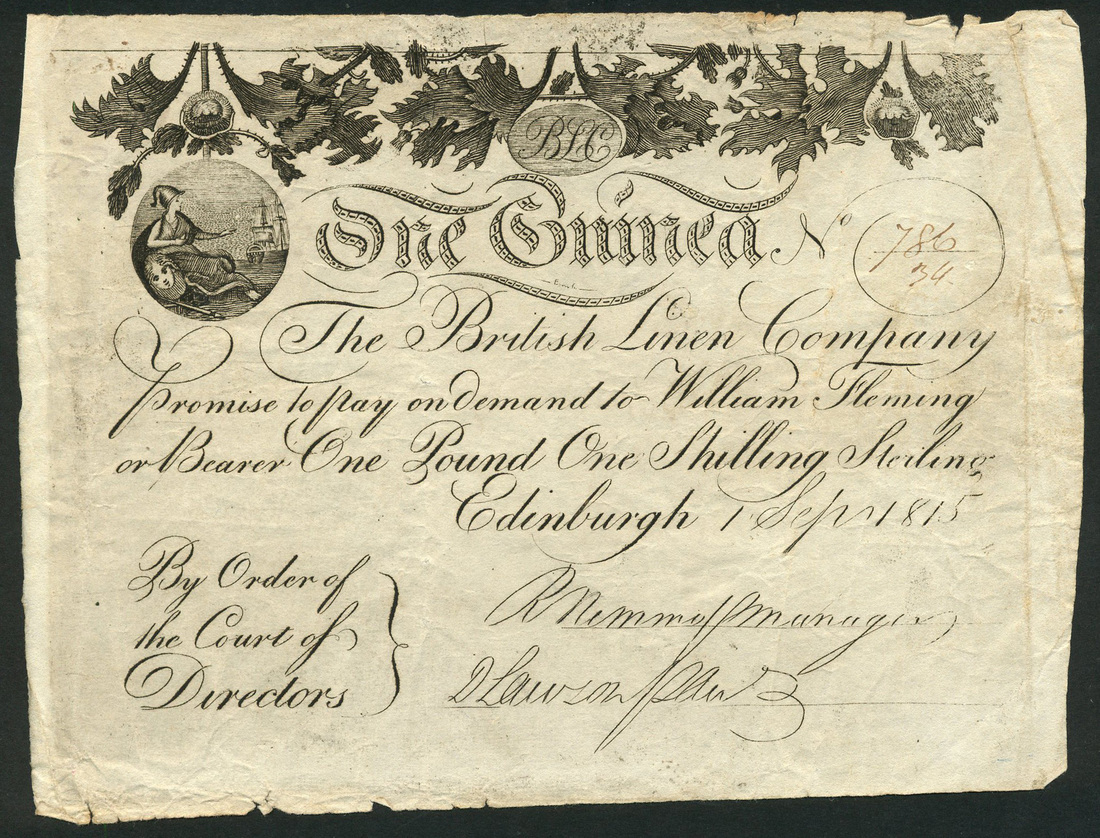 BLC
One Guinea No 786
34
The British Linen Company
Promise to pay on demand to William Fleming
or Bearer One Pound One Shilling Sterling
Edinburgh 1 Sep 1815
By Order of
the Court of
Directors
R Nimmo p manager
D Lawson p